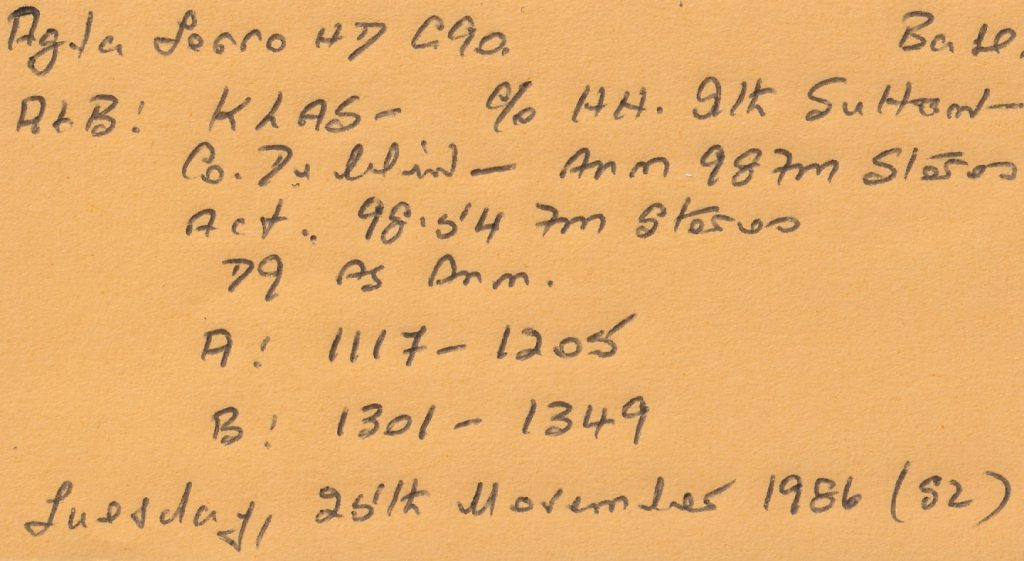 Agfa Ferro HD C90. Batt.
A+B: KLAS - c/o HH. 9th Sutton -
Co. Dublin - Ann 98 7m Stereo
Act. 98.54 7m Stereo
79 As Ann.
A: 1117 - 1205
B: 1301 - 1349
Tuesday, 25th November 1986 (S2)